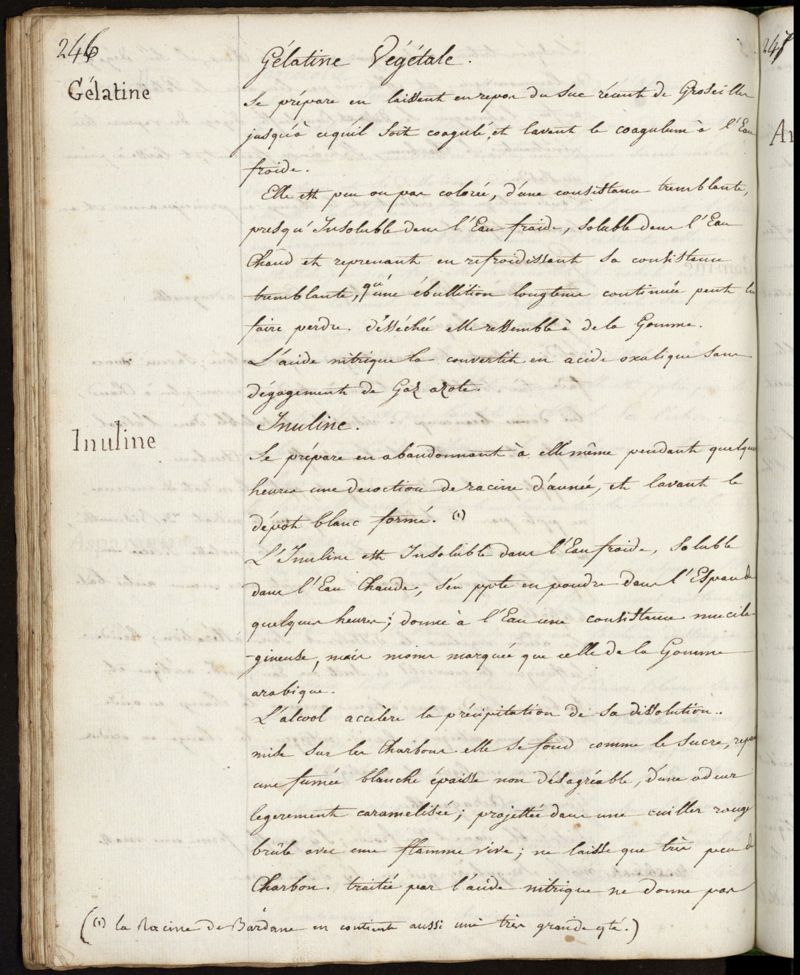 246
Gélatine Végétale.
Gélatine
Se prépare en laissant en repos du suc récent de Groseilles
jusqu'à cequ'il soit coagulé, et lavant le coagulum à l'Eau
froide.
Elle est peu ou pas colorée, d'une consistance tremblante,
presqu'Insoluble dans l'Eau froide, soluble dans l'Eau
Chaud et reprenant en refroidissant sa consistance
tremblante, qu'une ébullition longtems continuée peut la
faire perdre. désséchée elle ressemble à de la Gomme.
L'acide nitrique la convertit en acide oxalique sans
dégagement de Gaz azote.
Inuline.
Inuline
Se prépare en abandonnant à elle même pendant quelques
heures une decoction de racine d'aunée, et lavant le
dépot blanc formé. (1)
L'Inuline est Insoluble dans l'Eau froide, soluble
dans l'Eau Chaude, s'en ppte en poudre dans l'Espace de
quelques heures; donne à l'Eau une consistance mucila-
-gineuse, mais moins marquée que celle de la Gomme
arabique.
L'alcool accélère la précipitation de sa dissolution.
mise sur les Charbons elle se fond comme le sucre,
une fumée blanche épaisse non désagréable, d'une odeur
legerement caramelisée; projettée dans une cuiller rouge
brûle avec une flamme vive; ne laisse que très peu de
Charbon. traitée par l'acide nitrique ne donne pas
((1) la Racine de Bardane en contient aussi une très grande qté.)
247
An